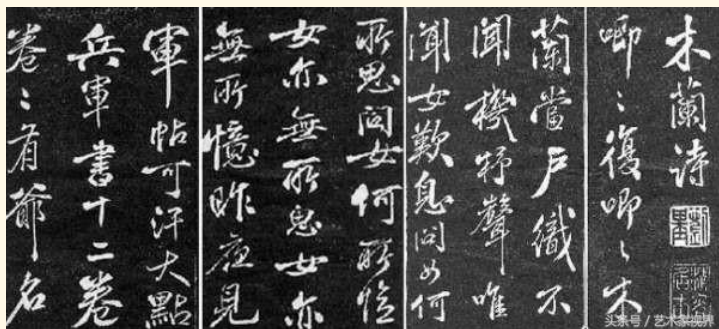 木蘭诗
唧〻復唧〻木
蘭當户織不
聞機杼聲唯
聞女歎息问女何
所思问女何所憶
女亦無所思女亦
無所憶昨夜見
軍帖可汗大點
兵軍書十二卷
卷〻有爺名
头条号 / 艺术家视界